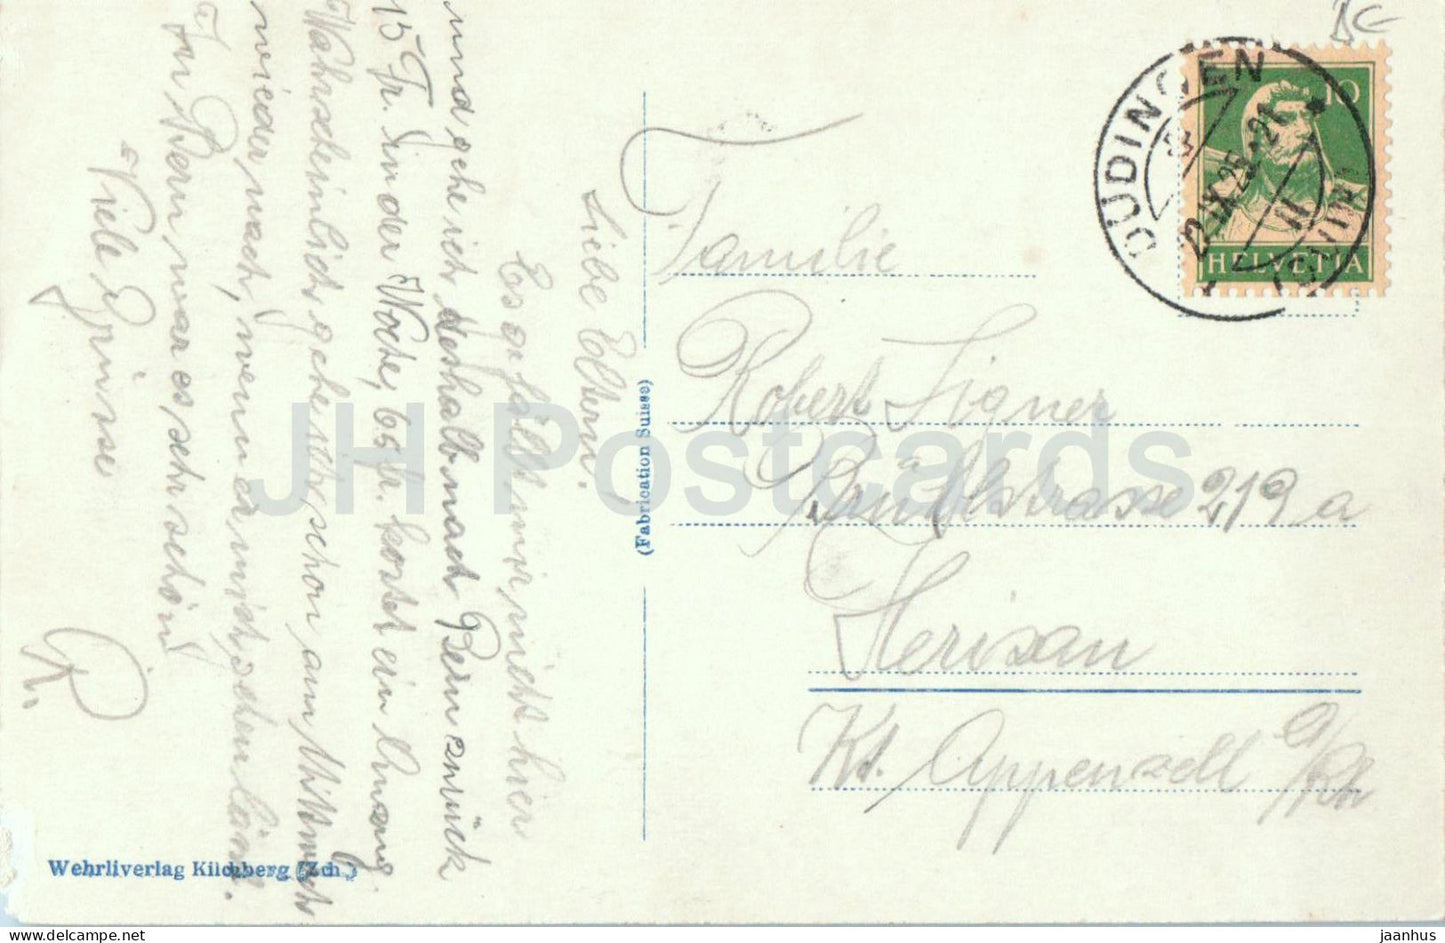 DÜDINGEN
22.IX.25.-21
10
HELVETIA
Familie
Robert Signer
Bühlstrasse 219 a
Herisau
Kt. Appenzell A/Rh
Liebe Eltern!
Es gefällt mir nicht hier
und gehe ich deshalb nach Bern zurück
15 Fr. in der Woche, 6 gh. kostet ein
Wahrscheinlich gehe ich schon am Mittwoch
wieder nach, wenn er mich gehen lässt.
In Bern war es sehr schön
Viele Grüsse
R.
(Fabrication Suisse)
Wehrliverlag Kilchberg (Zch.)
JH Postcards
jaanhus